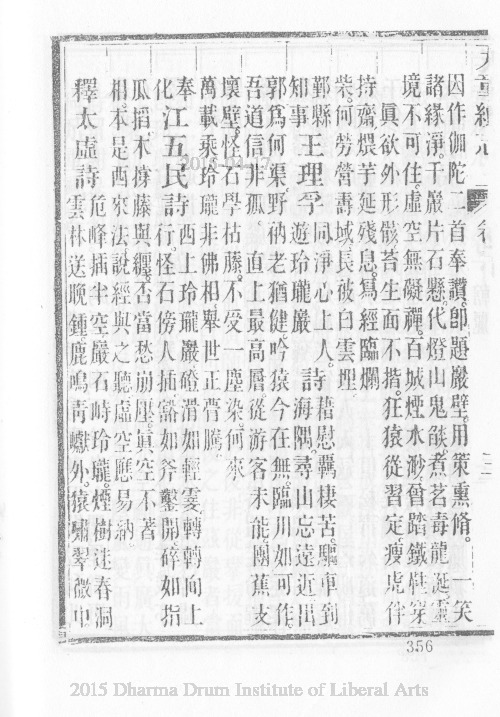 因作伽陀二首奉讚卽題巖壁用策熏脩一笑
諸緣淨千巖片石懸代燈山鬼燄煮茗毒龍涎靈
境不可住虛空無礙禪百城煙水渺曾踏鐵鞋穿
眞欲外形骸苔生面不揩狂猿從習定瘦虎伴
持齋煨芋延殘息寫經臨爛
柴何勞營壽域長被白雲埋
鄞縣王理孚同淨心上人詩藉慰羈棲苦驅車到
知事 遊玲瓏巖 海隅尋山忘遠近出
郭爲何渠野衲老猶健吟猿今在無臨川如可作
吾道信非孤 直上最高層從游客未能團蕉支
壞壁怪石學枯藤不受一塵染何來
萬載乘玲瓏非佛相舉世正瞢騰
奉江五民詩西上玲瓏巖磴滑如輕霎轉轉向上
化 行怪石傍人插豁如斧鑿開碎如指
爪搯木撐藤與纏否當愁崩壓眞空不著
相本是西來法說經與之聽虛空應易納
釋太虛詩危峰插半空巖石峙玲瓏煙樹迷春洞
雲林送晚鍾鹿鳴靑巘外猿嘯翠微中
天童續志
356
2015 Dharma Drum Institute of Liberal Arts